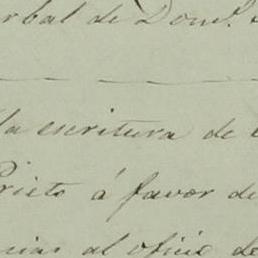 rbal de Dom.º
la escritura de
Prieto á favor de
cias al oficio de